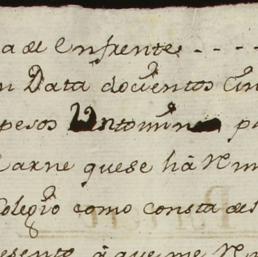 a de Enfrente. - - - -
n Data docientos Cin
pesos
Carne que se há
Colegio como consta de
esento, á que me